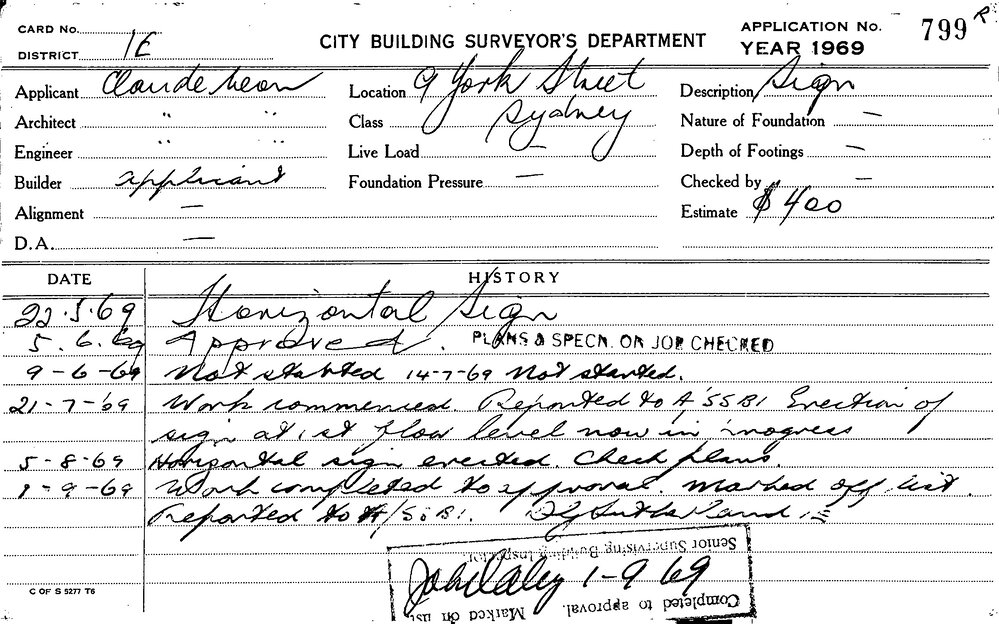 CARD No.
DISTRICT 1E
CITY BUILDING SURVEYOR'S DEPARTMENT
APPLICATION No. 799 R
YEAR 1969
Applicant Claude Neon
Location 9 York Street
Description Sign
Architect " "
Class Sydney
Nature of Foundation —
Engineer " "
Live Load
Depth of Footings —
Builder applicant
Foundation Pressure —
Checked by —
Alignment —
Estimate $400
D.A. —
DATE HISTORY
22.5.69 Horizontal Sign
5.6.69 Approved. PLANS & SPECN. ON JOB CHECKED
9-6-69 Not started 14-7-69 Not started.
21-7-69 Work commenced. Reported to A/SSBI Erection of
sign at 1st floor level now in progress
5-8-69 Horizontal sign erected. Check plans.
1-9-69 Work completed to approval. Marked off list.
Reported to A/S.B.I. Sutherland
Senior Supervising Building Inspector.
John Daley 1-9 69
Completed to approval. Marked on list
C OF S 5277 T6